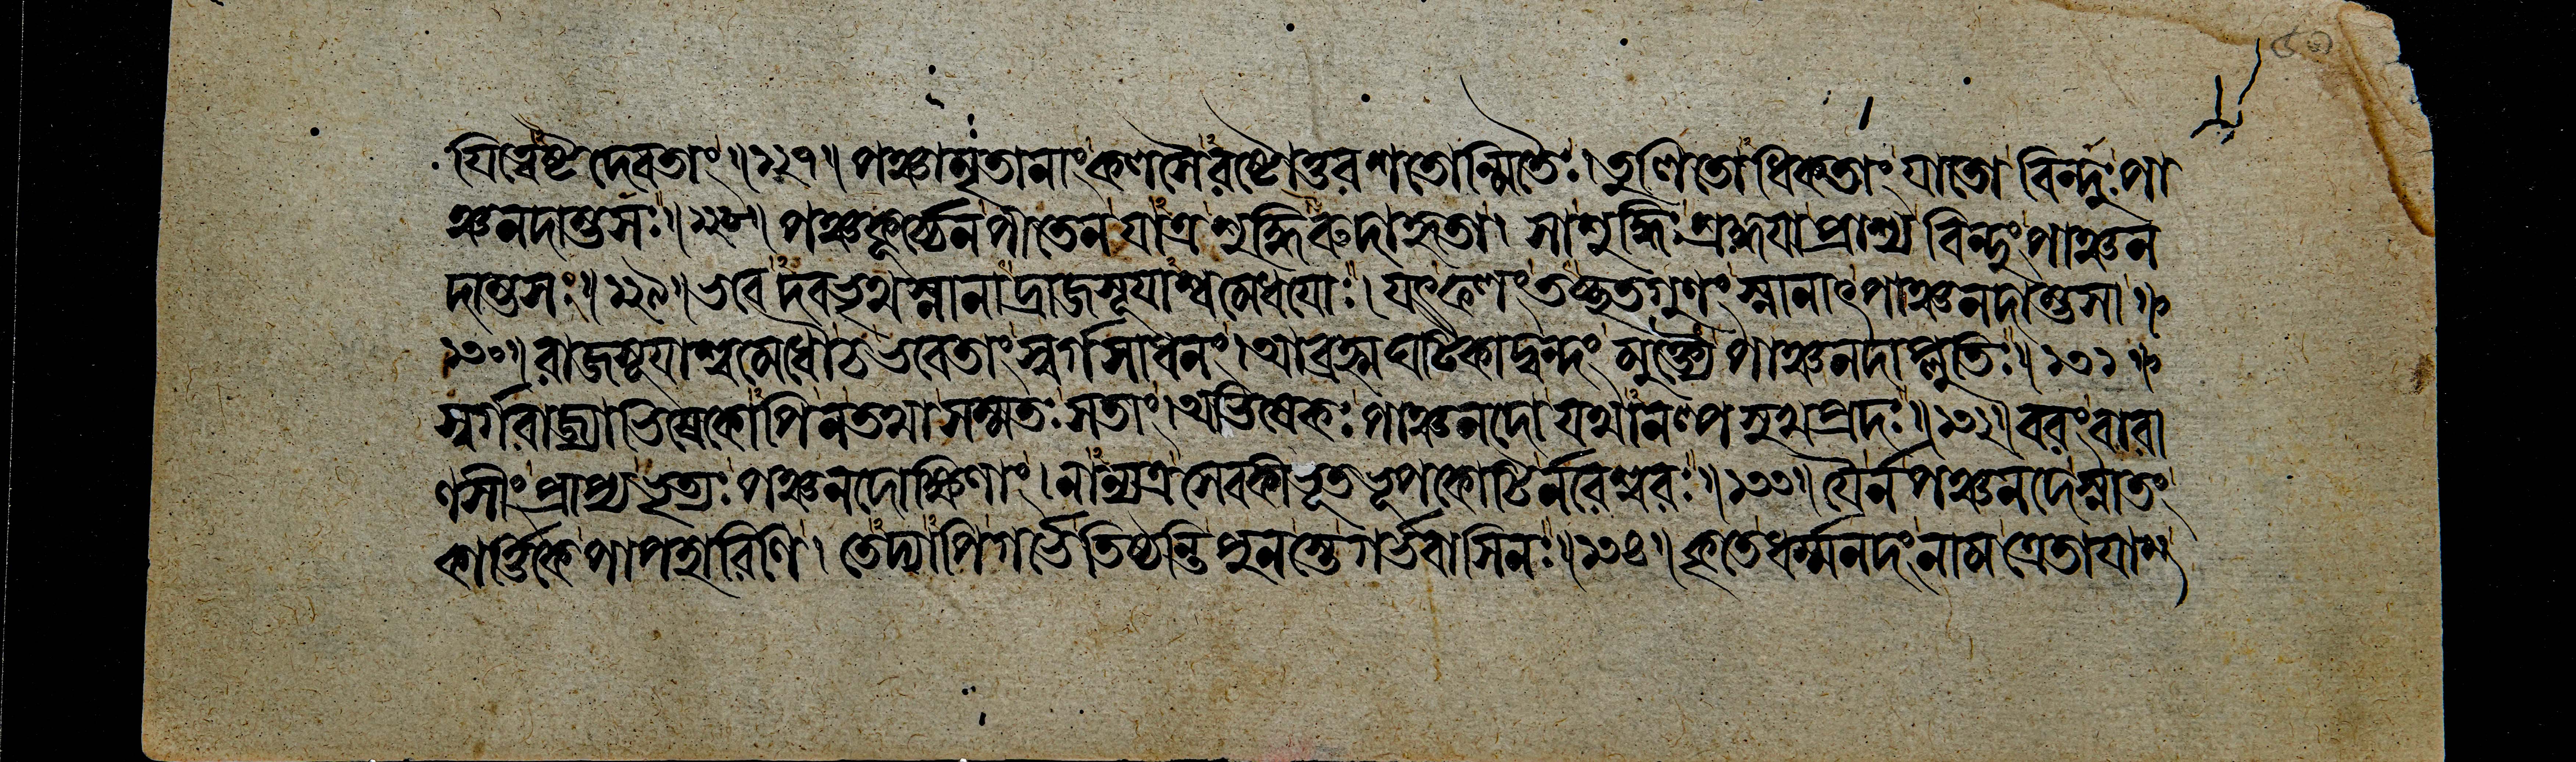 যিত্বেষ্টদেবতাং॥১২৭॥ পঞ্চামৃতানাং কলসৈরষ্টোত্তরশতোন্মিতৈঃ। তুলিতোধিকতাং যাতো বিন্দুঃ পা
ঞ্চনদাম্ভসঃ॥১২৮॥ পঞ্চকূর্চ্চেন পীতেন যাত্র শুদ্ধিরুদাহৃতা। সা শুদ্ধিঃ শ্রদ্ধযা প্রাশ্য বিন্দুং পাঞ্চন
দাম্ভসঃ॥১২৯॥ ভবেদবভৃথস্নানাদ্রাজসূযাশ্বমেধযোঃ। যৎফলং তচ্ছতগুণং স্নানাৎ পাঞ্চনদাম্ভসা॥
১৩০॥ রাজসূযাশ্বমেধৌ চ ভবেতাং স্বর্গসাধনং। আব্রহ্মঘটিকাদ্বন্দ্বং মুক্ত্যৈ পাঞ্চনদাপ্লুতিঃ॥১৩১॥
স্বর্গরাজ্যাভিষেকোপি ন তথা সম্মতঃ সতাং। অভিষেকঃ পাঞ্চনদো যথানল্পসুখপ্রদঃ॥১৩২॥ বরং বারা
ণসীং প্রাপ্য ভৃত্যঃ পঞ্চনদোক্ষিণাং। নান্যত্র সেবকীভূতভূপকোটির্নরেশ্বরঃ॥১৩৩॥ যৈর্ন পঞ্চনদে স্নাতং
কার্ত্তিকে পাপহারিণি। তেদ্যাপি গর্ভে তিষ্ঠন্তি পুনস্তে গর্ভবাসিনঃ॥১৩৪॥ কৃতে ধর্ম্মনদং নাম ত্রেতাযাম্